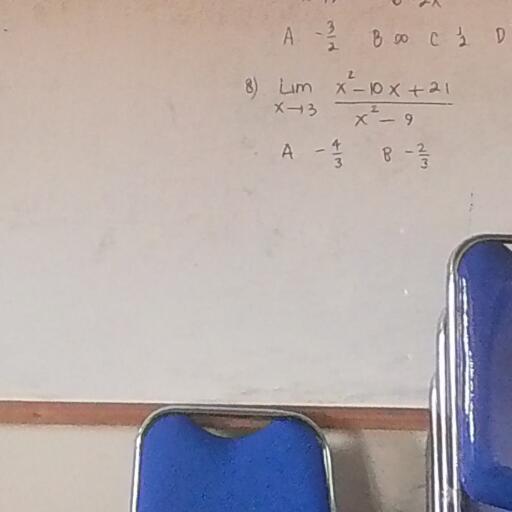 A -3/2 B ∞ C 1/2 D
8) Lim x→3 x²-10x+21 / x²-9
A -4/3 B -2/3